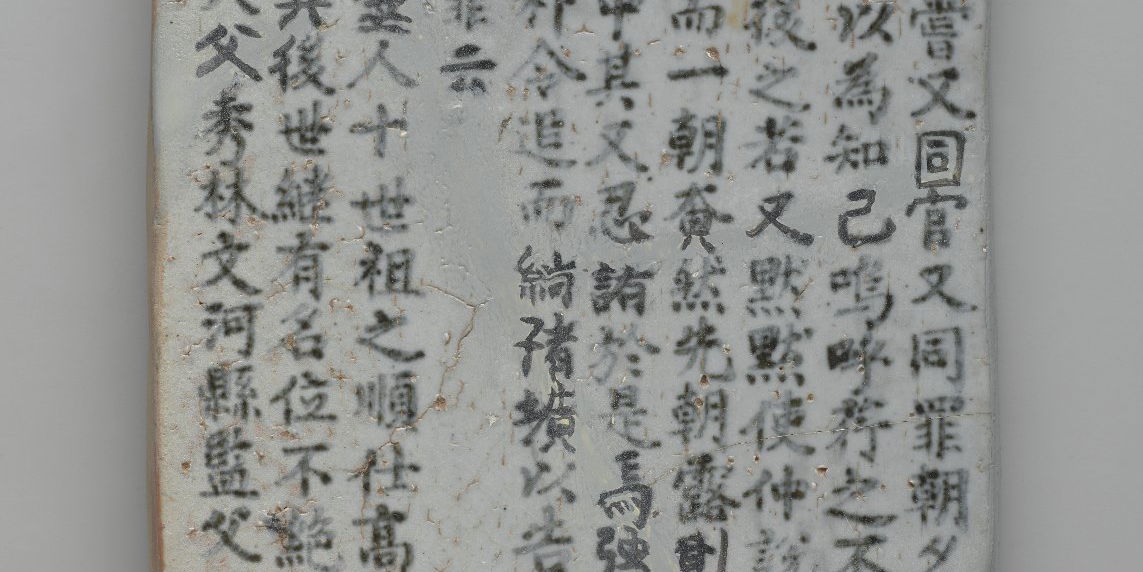 嘗又同官又同罪朝夕
以為知己嗚呼行之不
後之若又默默使仲說
而一朝奄然先朝露則
中其又忍諸於是焉強
令追而綴諸壙以告
云
人十世祖之順仕高
其後世繼有名位不絶
父秀林文河縣監父